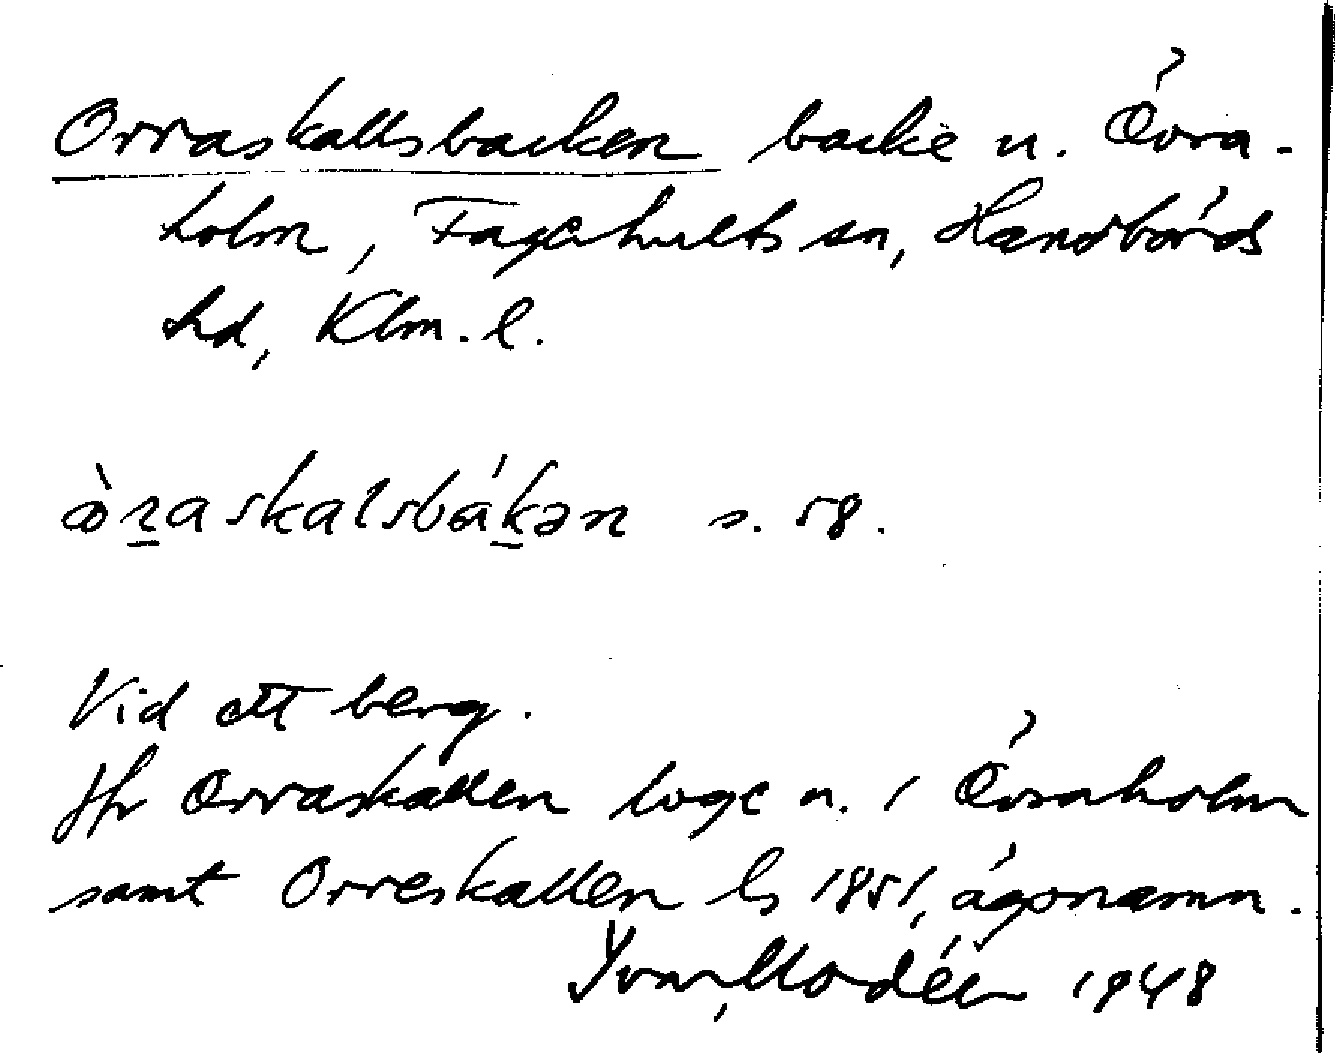 Orraskallsbacken backe n. Övra-
holm, Fagerhults sn, Handbörds
hd, Klm. l.
òraskalsbákən s. 58.
Vid ett berg.
Jfr Orraskallen loge n. i Övraholm
samt Orreskallen ls 1851, ägonamn.
Yvar Modéer 1948